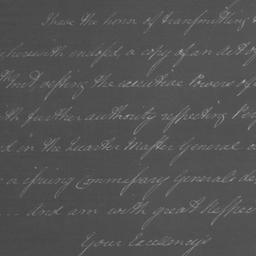 I have the honor of transmitting
herewith enclosed, a copy of an act of
vesting the executive Powers of
with further authority respecting Per
in the Quarter Master General
issuing Commissary Generals de
and am with great Respec
Your Excellency's